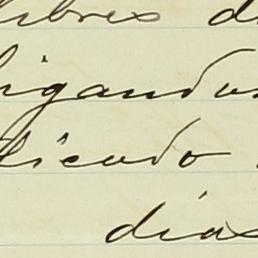 libres d
igando
licado
dias